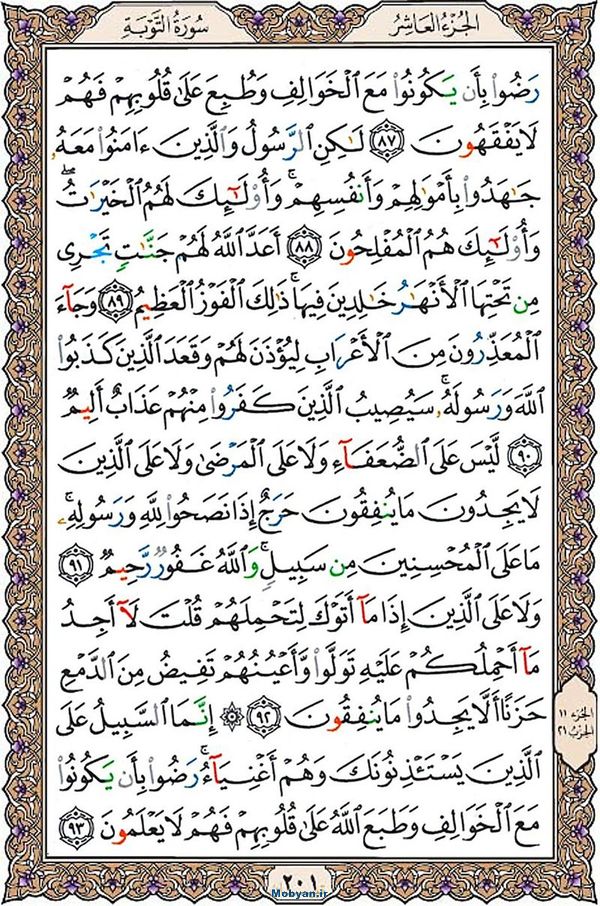 الجُزْءُ العَاشِرُ
سُورَةُ التَّوْبَةِ
رَضُوا۟ بِأَن يَكُونُوا۟ مَعَ ٱلْخَوَالِفِ وَطُبِعَ عَلَىٰ قُلُوبِهِمْ فَهُمْ
لَا يَفْقَهُونَ ٨٧ لَـٰكِنِ ٱلرَّسُولُ وَٱلَّذِينَ ءَامَنُوا۟ مَعَهُۥ
جَـٰهَدُوا۟ بِأَمْوَٰلِهِمْ وَأَنفُسِهِمْ ۚ وَأُو۟لَـٰٓئِكَ لَهُمُ ٱلْخَيْرَٰتُ ۖ
وَأُو۟لَـٰٓئِكَ هُمُ ٱلْمُفْلِحُونَ ٨٨ أَعَدَّ ٱللَّهُ لَهُمْ جَنَّـٰتٍ تَجْرِى
مِن تَحْتِهَا ٱلْأَنْهَـٰرُ خَـٰلِدِينَ فِيهَا ۚ ذَٰلِكَ ٱلْفَوْزُ ٱلْعَظِيمُ ٨٩ وَجَآءَ
ٱلْمُعَذِّرُونَ مِنَ ٱلْأَعْرَابِ لِيُؤْذَنَ لَهُمْ وَقَعَدَ ٱلَّذِينَ كَذَبُوا۟
ٱللَّهَ وَرَسُولَهُۥ ۚ سَيُصِيبُ ٱلَّذِينَ كَفَرُوا۟ مِنْهُمْ عَذَابٌ أَلِيمٌ
٩٠ لَّيْسَ عَلَى ٱلضُّعَفَآءِ وَلَا عَلَى ٱلْمَرْضَىٰ وَلَا عَلَى ٱلَّذِينَ
لَا يَجِدُونَ مَا يُنفِقُونَ حَرَجٌ إِذَا نَصَحُوا۟ لِلَّهِ وَرَسُولِهِۦ ۚ
مَا عَلَى ٱلْمُحْسِنِينَ مِن سَبِيلٍ ۚ وَٱللَّهُ غَفُورٌ رَّحِيمٌ ٩١
وَلَا عَلَى ٱلَّذِينَ إِذَا مَآ أَتَوْكَ لِتَحْمِلَهُمْ قُلْتَ لَآ أَجِدُ
مَآ أَحْمِلُكُمْ عَلَيْهِ تَوَلَّوا۟ وَّأَعْيُنُهُمْ تَفِيضُ مِنَ ٱلدَّمْعِ
حَزَنًا أَلَّا يَجِدُوا۟ مَا يُنفِقُونَ ٩٢ ۞ إِنَّمَا ٱلسَّبِيلُ عَلَى
ٱلَّذِينَ يَسْتَـْٔذِنُونَكَ وَهُمْ أَغْنِيَآءُ ۚ رَضُوا۟ بِأَن يَكُونُوا۟
مَعَ ٱلْخَوَالِفِ وَطَبَعَ ٱللَّهُ عَلَىٰ قُلُوبِهِمْ فَهُمْ لَا يَعْلَمُونَ ٩٣
الجُزء ١١
الحِزب ٢١
٢٠١
Mobyan.ir